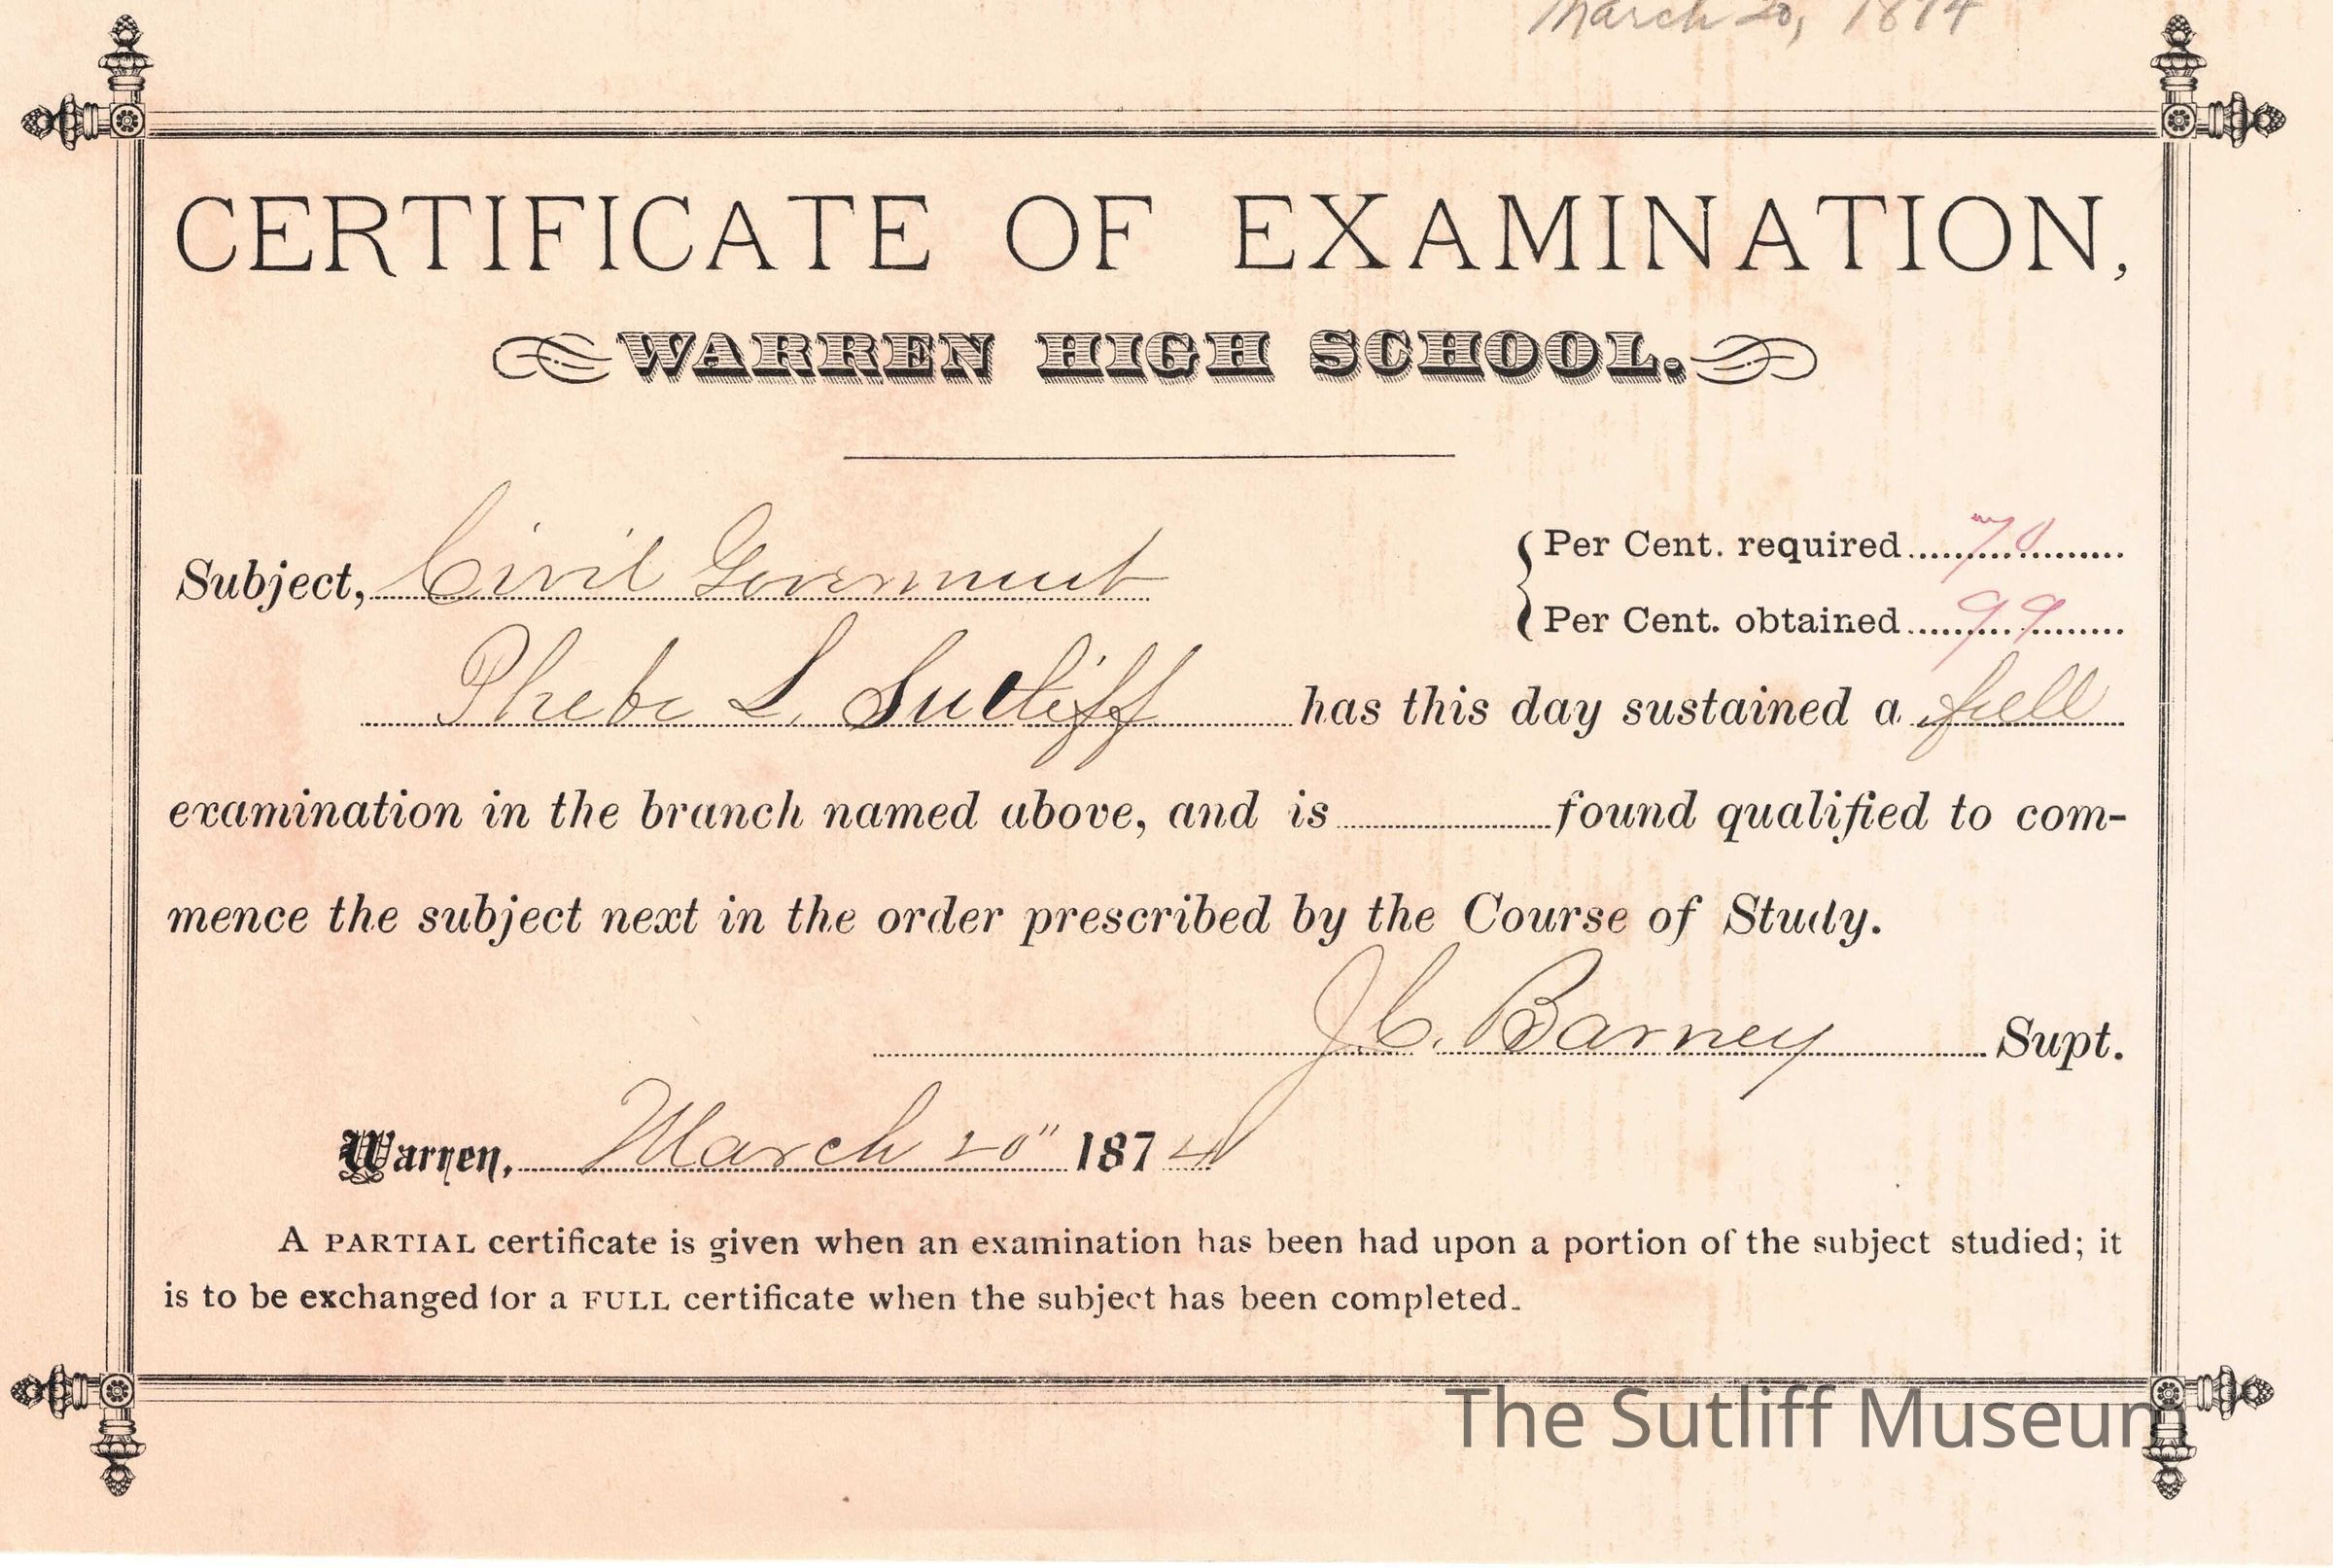 March 20, 1874
CERTIFICATE OF EXAMINATION,
WARREN HIGH SCHOOL.
Subject, Civil Goverment
Per Cent. required 70
Per Cent. obtained 99
Phebe L. Sutliff has this day sustained a full
examination in the branch named above, and is found qualified to com-
mence the subject next in the order prescribed by the Course of Study.
J.C. Barney Supt.
Warren, March 20" 1874
A PARTIAL certificate is given when an examination has been had upon a portion of the subject studied; it
is to be exchanged for a FULL certificate when the subject has been completed.
The Sutliff Museum